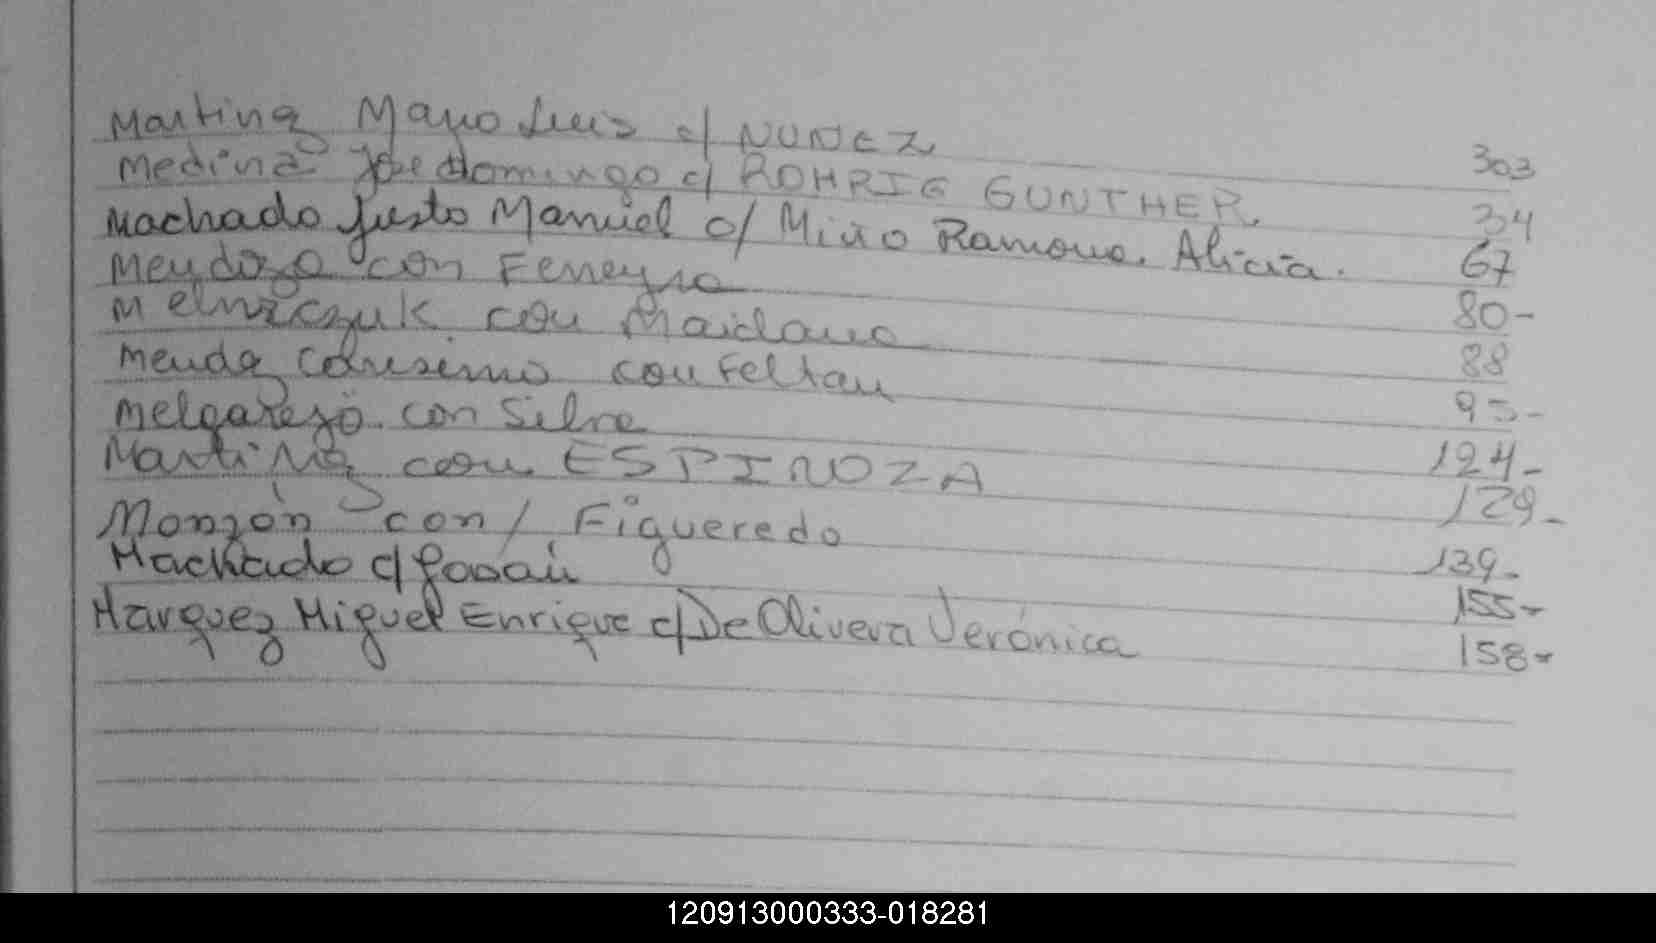 Martinez Mario Luis c/ NUNEZ 303
Medina José Domingo c/ ROHRIG GUNTHER. 34
Machado Justo Manuel c/ Miño Ramona. Alicia. 67
Mendoza con Ferreyra 80-
Melniczuk con Maidana 88
con Feltan 95-
Melgarejo. con Silva 124-
Martinez con ESPINOZA 129-
Monzón con/ Figueredo 139-
Machado c/ 155-
Marquez Miguel Enrique c/ De Olivera Verónica 158-
120913000333-018281